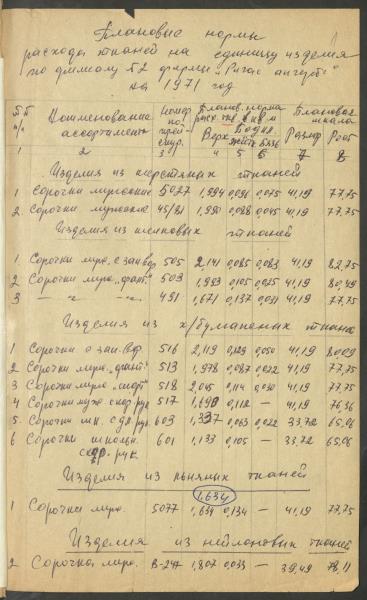 Плановые нормы
расхода тканей на единицу изделия
по филиалу №2 фирмы „Ригас апгербс"
на 1971 год
№№ п/п Наименование ассортимента Номер по прейскур. Планов. норма расх. тк. в кв. м Плановая шкала
Верх Размер Рост
1 2 3 4 5 6 7 8
Изделия из шерстяных тканей
1 Сорочки мужские 5027 1,994 0,096 0,075 41,19 77,75
2. Сорочки мужские 45/81 1,990 0,088 0,045 41,19 77,75
Изделия из шелковых тканей
1 Сорочки муж. с зап. вор 505 2,141 0,085 0,083 41,19 82,75
2 Сорочки муж. „фант." 503 1,953 0,105 0,025 41,19 80,49
3 — " — " — 491 1,671 0,137 0,031 41,19 77,75
Изделия из х/бумажных ткани
1 Сорочки о зап. вор. 516 2,119 0,129 0,050 41,19 80,09
2 Сорочки муж. „фант" 513 1,978 0,087 0,032 41,19 77,75
3 Сорочки муж. 518 2,045 0,114 0,030 41,19 77,75
4 Сорочки муж. с кор. рук 517 1,690 0,112 — 41,19 76,36
5. Сорочки шк. с дл. рук 603 1,337 0,063 0,022 33,72 65,06
6 Сорочки школьн. 601 1,133 0,105 — 33,72 65,06
рук.
Изделия из льняных тканей
1,634
1 Сорочки муж. 5077 1,634 0,134 — 41,19 77,75
Изделия из нейлоновых тканей
2 Сорочка муж. В-247 1,807 0,033 — 39,49 78,11